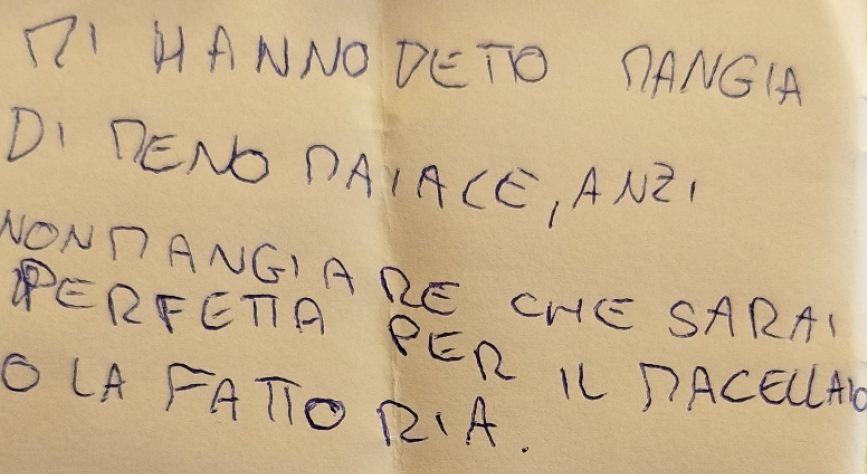 MI HANNO DETTO MANGIA
DI MENO MAIACE, ANZI
NON MANGIARE CHE SARAI
PERFETTA PER IL MACELLAIO
O LA FATTORIA.